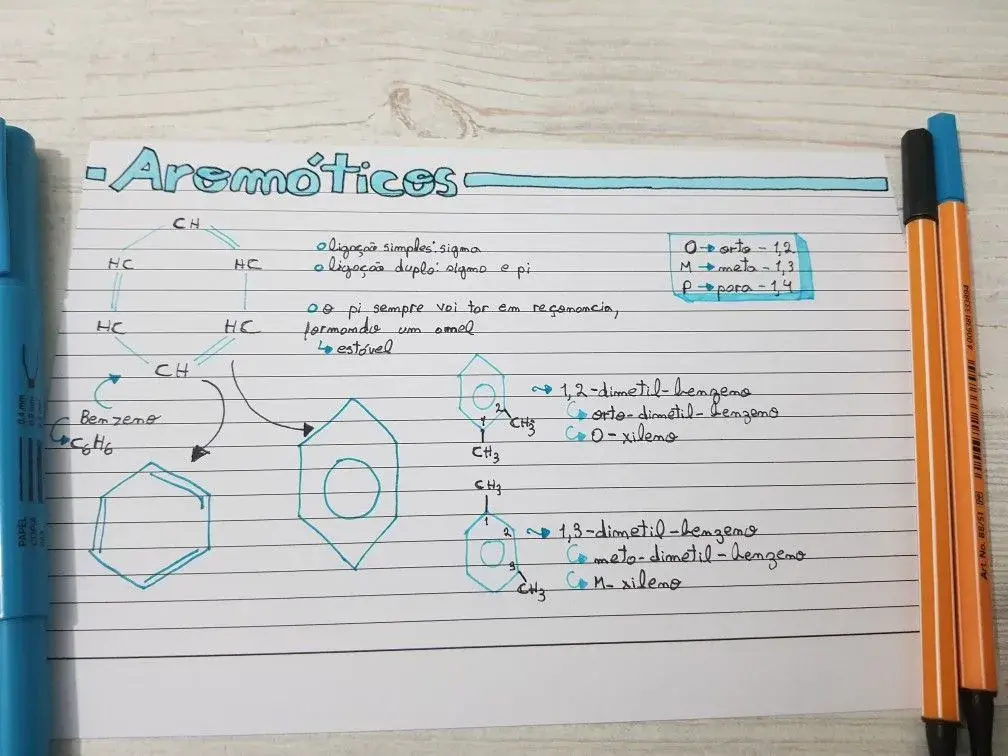 - Aromáticos
CH
HC HC
HC HC
CH
Benzeno
C6H6
ligação simples: sigma
ligação dupla: sigma e pi
o pi sempre vai tar em reçonancia,
formando um anel
estável
O → orto - 1,2
M → meta - 1,3
P → para - 1,4
1 2
CH3
CH3
1,2-dimetil-benzeno
orto-dimetil-benzeno
O-xileno
CH3
1
2
3
CH3
1,3-dimetil-benzeno
meta-dimetil-benzeno
M-xileno
0.4 mm
PAPEL
Art. No. 88/51